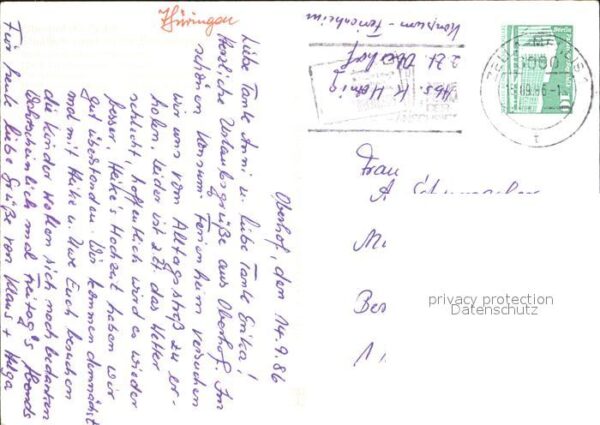 Thüringen
Oberhof, den 14.9.86
Liebe Tante Anni u. liebe Tante Erika!
Herzliche Urlaubsgrüße aus Oberhof. Im
schönen Konsum Ferienheim versuchen
wir uns vom Alltagsstreß zu er-
holen. Leider ist z. Zt. das Wetter
schlecht, hoffentlich wird es wieder
besser. Heike's Hochzeit haben wir
gut überstanden. Wir kommen demnächst
und mit Heike u. Uwe Euch besuchen
die Kinder wollen sich noch bedanken
Wahrscheinlich mal Freitag's Abends
Für heute liebe Grüße von Klaus + Helga
Abs. K. Hönig
z. Zt. Oberhof
Konsum-Ferienheim
Berlin
10
ZELLA-MEHLIS 1
6000
.09.86-1
t
Frau
A.
M
Be
privacy protection
Datenschutz